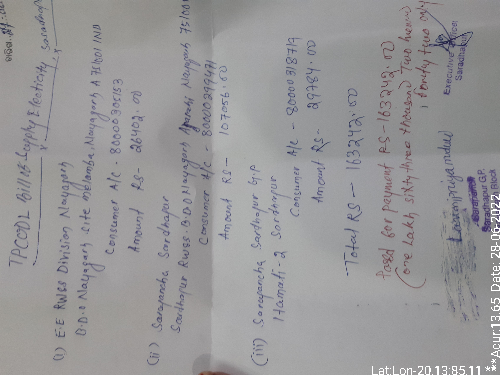 TPCODL Bill of Supply Electicity, Saradhapur
(i) E.E RWSS Division Nayagarh
B.D.O Nayagarh site malisahi, Nayagarh A 752001 IND
Consumer A/c - 80000305153
Amount RS- 26402.00
(ii) Sarapancha Sardhapur
Sardhapur RWSS B.D.O Nayagarh Nayagarh
Consumer A/c - 80000298471
Amount RS- 107056.00
(iii) Sarapancha Sardhapur G.P
Itamati-2 Sardhapur
Consumer A/c - 80000318719
Amount RS- 29784.00
Total RS- 163242.00
Passed for payment RS-163242.00
(one Lakh sixty three thousand Two hundred
forty two only
Executive Officer
Saradhapur G.P.
Block
Lat:Lon-20.13:85.11 **Acur:13.65 Date: 28-06-2022